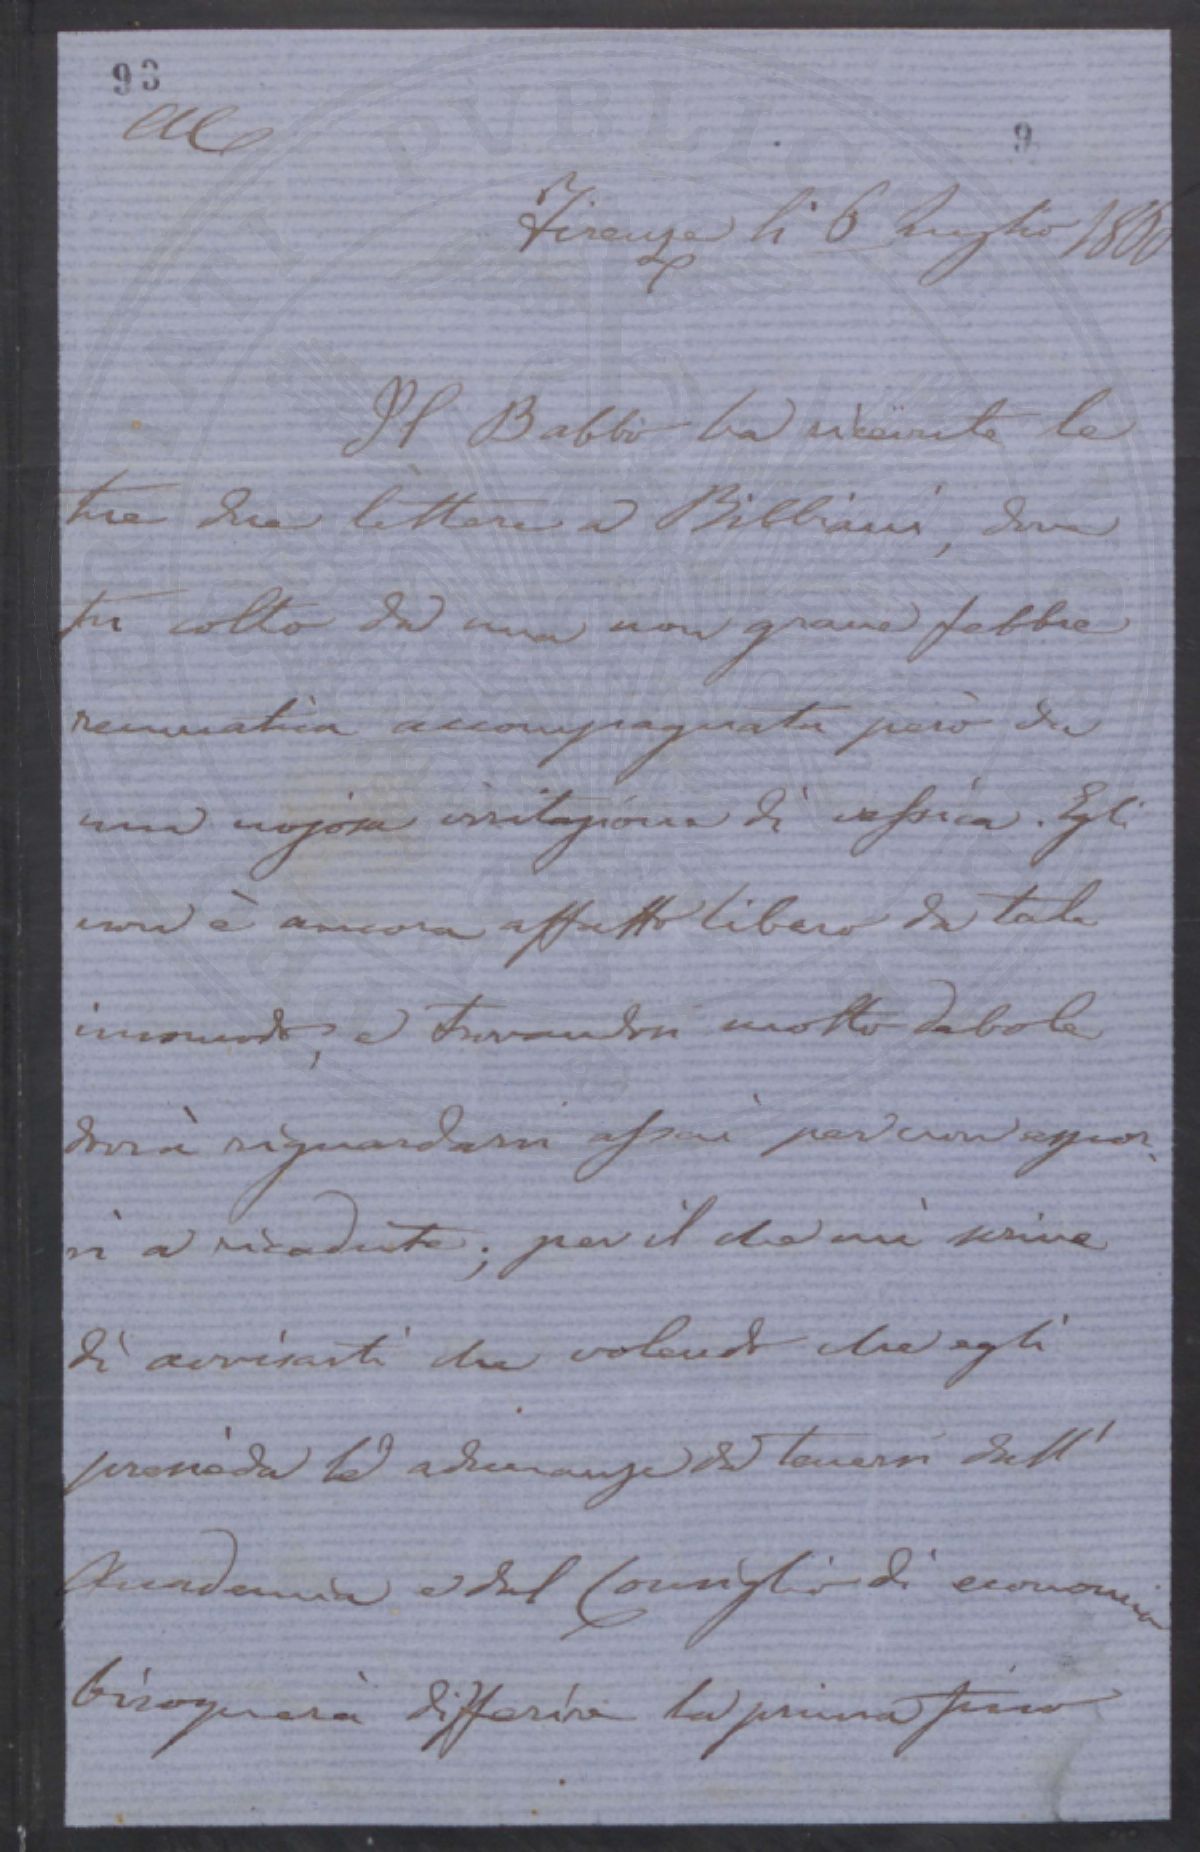 93
9
Firenze li 6 Luglio 1860
Il Babbo ha ricevute le
tue due lettere a Bibbiani, dove
fu colto da una non grave febbre
reumatica accompagnata però da
una nojosa irritazione di vessica. Egli
non è ancora affatto libero da tale
incomodo, e trovandosi molto debole
dovrà riguardarsi assai per non espor-
si a ricadute; per il che mi scrive
di avvisarti che volendo che egli
presieda le adunanze da tenersi dall'
Accademia e dal Consiglio di economia
bisognerà differire la prima fino